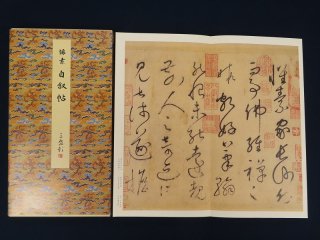 懷素 自叙帖
懷素家長沙幼
而事佛經禪之
暇頗好筆翰
然恨未能遠覩
前人之奇迹所
見甚淺遂擔